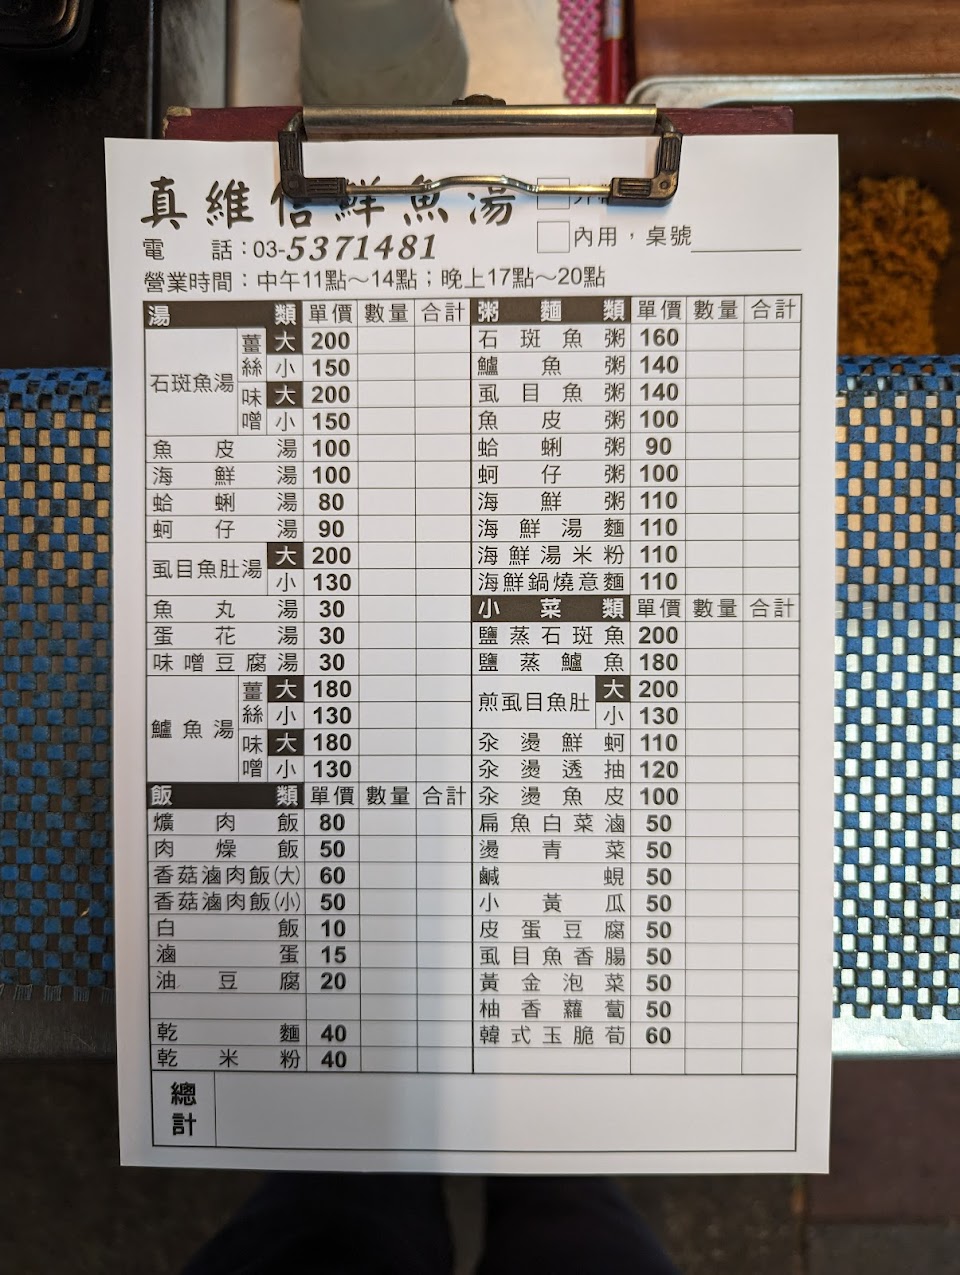 真維信鮮魚湯
電話：03-5371481
內用，桌號
營業時間：中午11點～14點；晚上17點～20點
湯類 單價 數量 合計
石斑魚湯 薑絲 大 200
小 150
味噌 大 200
小 150
魚皮湯 100
海鮮湯 100
蛤蜊湯 80
蚵仔湯 90
虱目魚肚湯 大 200
小 130
魚丸湯 30
蛋花湯 30
味噌豆腐湯 30
鱸魚湯 薑絲 大 180
小 130
味噌 大 180
小 130
飯類 單價 數量 合計
爌肉飯 80
肉燥飯 50
香菇滷肉飯(大) 60
香菇滷肉飯(小) 50
白飯 10
滷蛋 15
油豆腐 20
乾麵 40
乾米粉 40
粥麵類 單價 數量 合計
石斑魚粥 160
鱸魚粥 140
虱目魚粥 140
魚皮粥 100
蛤蜊粥 90
蚵仔粥 100
海鮮粥 110
海鮮湯麵 110
海鮮湯米粉 110
海鮮鍋燒意麵 110
小菜類 單價 數量 合計
鹽蒸石斑魚 200
鹽蒸鱸魚 180
煎虱目魚肚 大 200
小 130
汆燙鮮蚵 110
汆燙透抽 120
汆燙魚皮 100
扁魚白菜滷 50
燙青菜 50
鹹蜆 50
小黃瓜 50
皮蛋豆腐 50
虱目魚香腸 50
黃金泡菜 50
柚香蘿蔔 50
韓式玉脆筍 60
總計